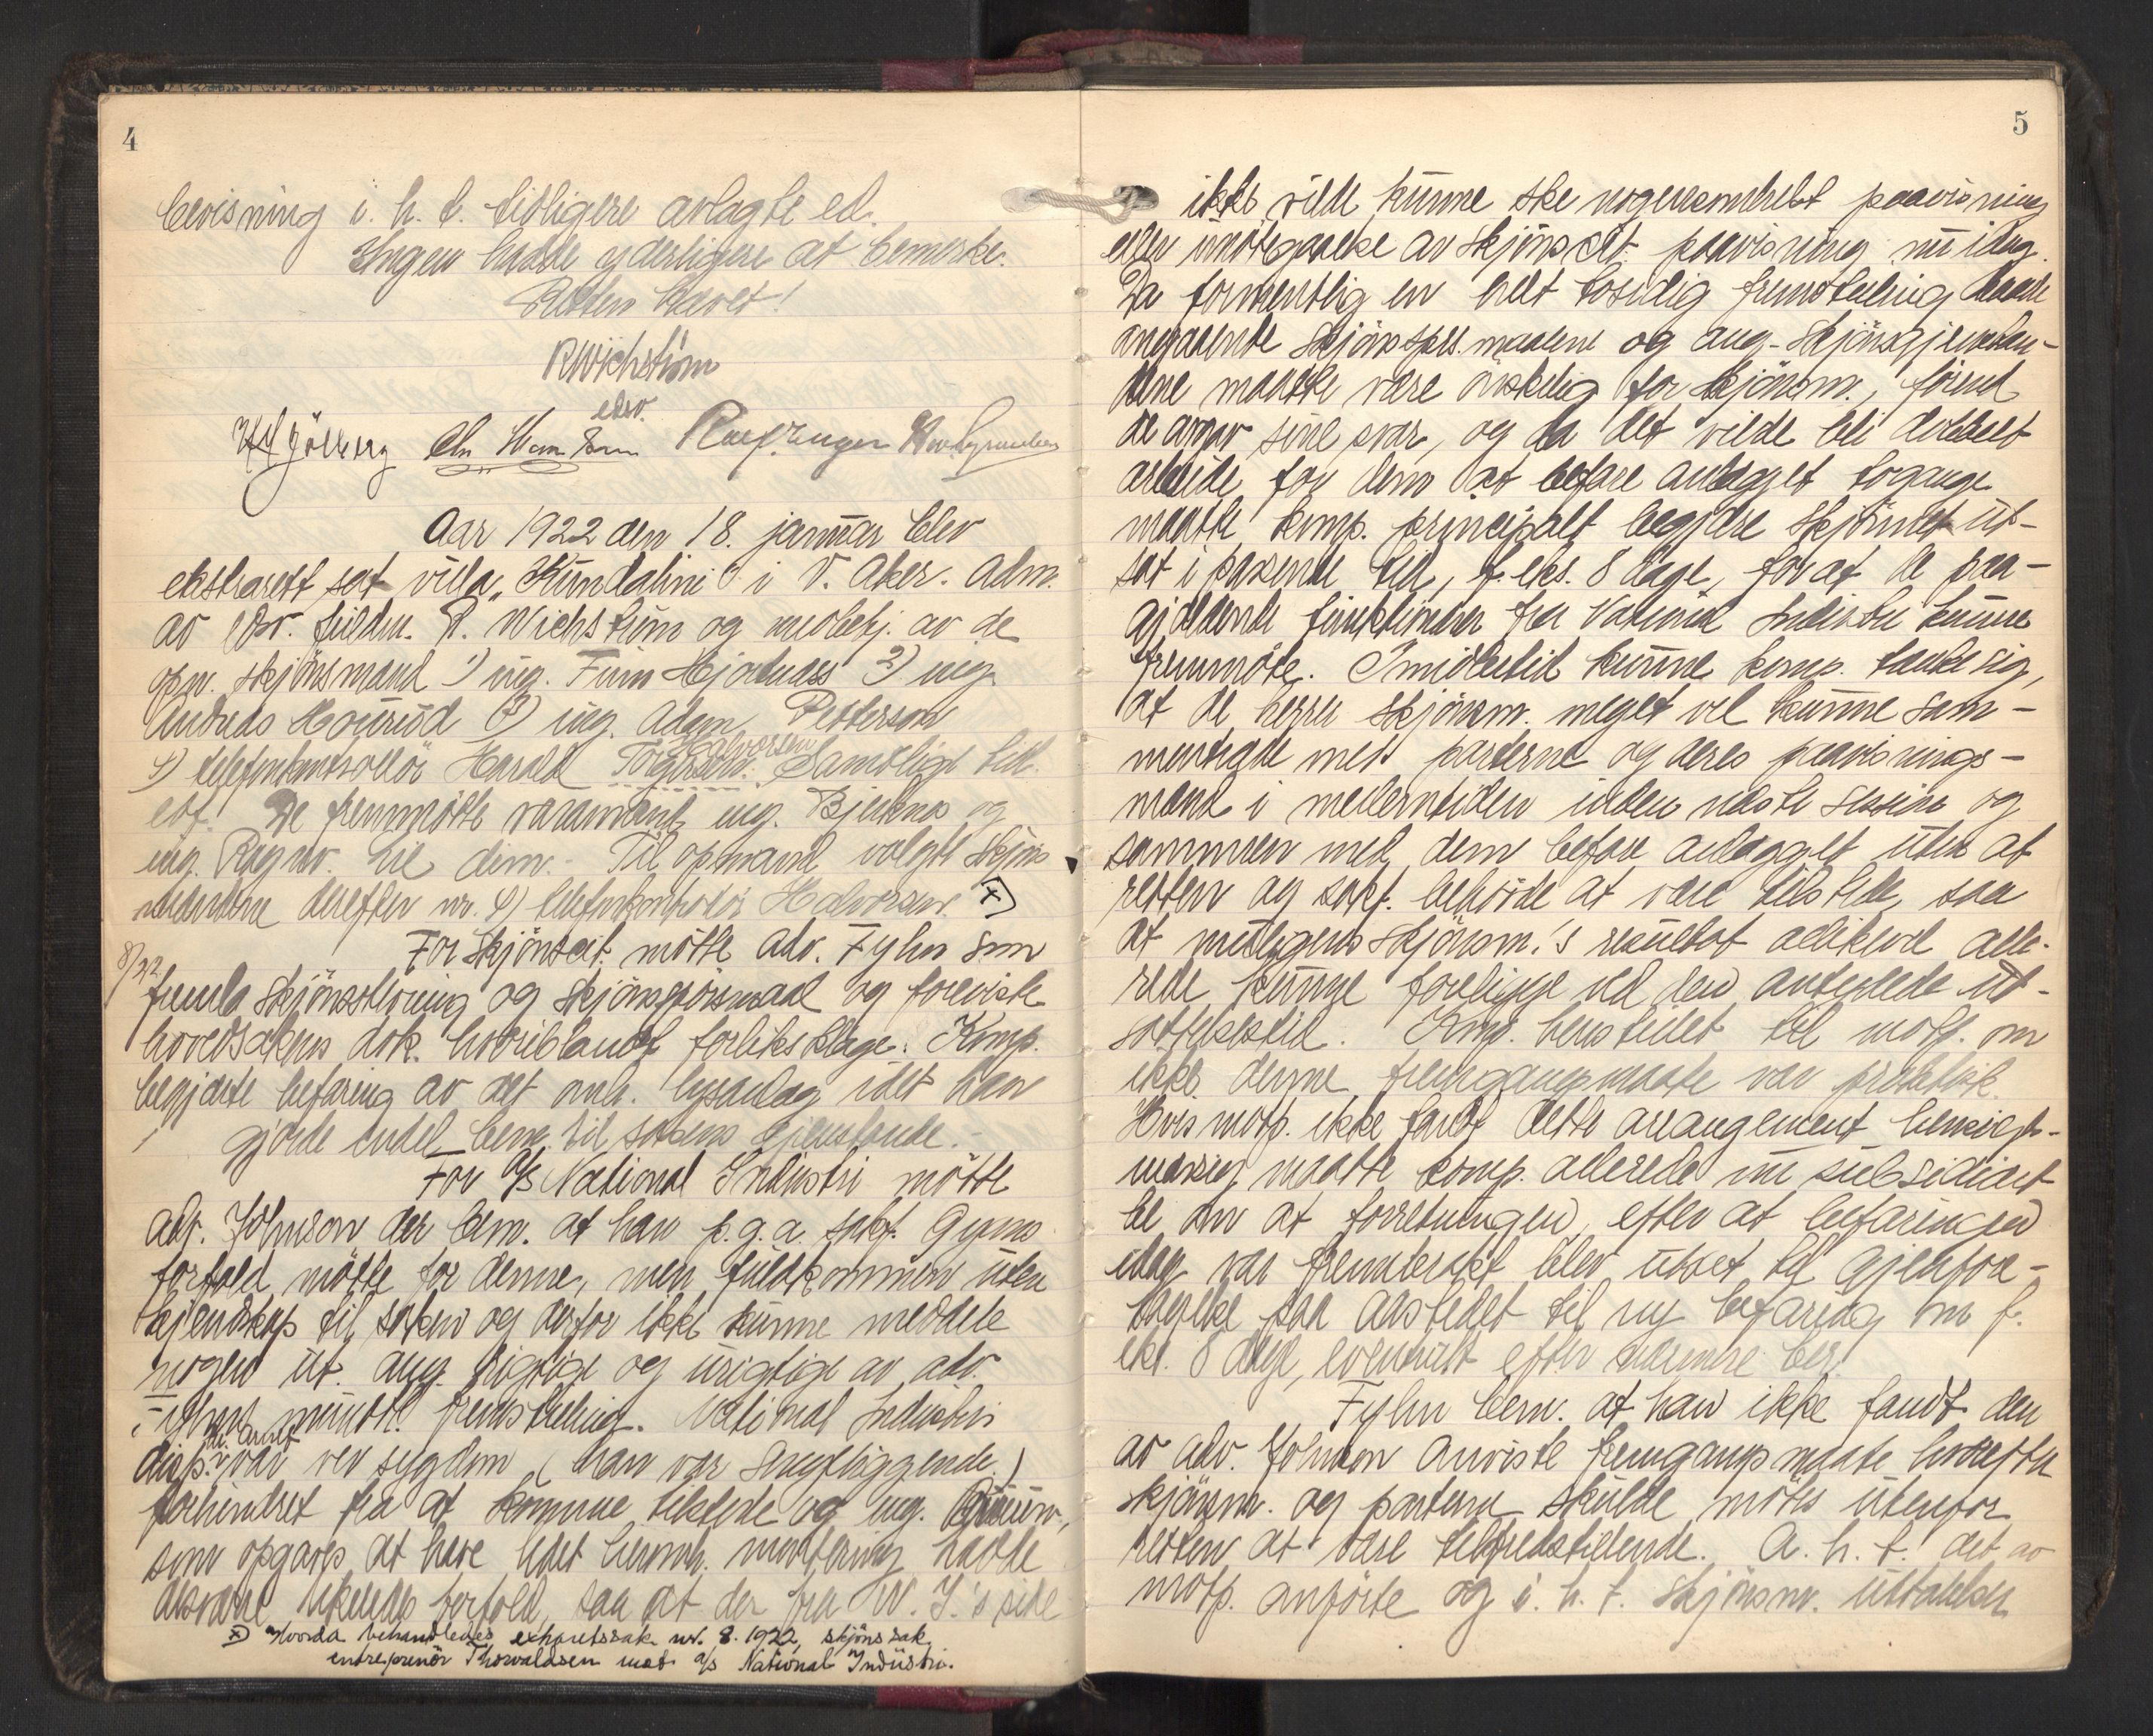 4
bevisning i. h. t. tidligere avlagte ed.
Ingen hadde yderligere at bemerke.
Retten hævet!
RWichstrøm
edsv.
Aar 1922 den 18. januar blev
ekstrarett sat villa "Kundalini" i V. Aker. Adm.
av edsv. fuldm. R. Wichstrøm og medbetj. av de
opn. skjönsmænd 1) ing. Finn Hjortnæs 2) ing.
Andreas Hourud 3) ing. Adam Petterson
4) telefonkontrollör Harald Torgersen. Halvorsen Samtlige till.
edf. De fremmötte varamænd ing. Bjerknes og
ing. Ragnv. Lie dim. Til opmand valgte skjöns
mændene derefter nr. 4) telefonkontrollör Halvorsen. x)
For skjönscit. mötte adv. Fyhn som
8/22
fremla skjönsstevning og skjönsspörsmaal og foreviste
hovedsakens dok. hvoriblandt forliksklage. Komp.
begjærte befaring av det omh. lysanlæg idet han
gjorde endel bem. til sakens gjenstande.
For A/S National Industri mötte
adv. Johnson der bem. at han p. g. a. sakf. Gyms
forfald mötte for denne, men fuldkommen uten
kjendskap til saken og derfor ikke kunne meddele
nogen ut. ang. rigtige og urigtige av adv.
Fyhns mundtl. fremstilling. National Industris
disp. var ved sygdom (han var sengeliggende)
forhindret fra at komme tilstede og ing.
som opgaves at have ledet heromh. montering hadde
desværre likeledes forfald, saa at der fra N. I.'s side
x) Hvorda behandledes extraretssak nr. 8. 1922, skjönssak
entreprenör Thorvaldsen mot a/s National Industri.
5
ikke vilde kunne ske nogensomhelst paavisning
eller imötegaaelse av skjönscit. paavisning nu idag.
Da formentlig en helt tosidig fremstilling baade
angaaende skjönsspörsmaalene og ang. skjönsgjenstan-
dene maatte være önskelig for skjönsm., förend
de avgav sine svar, og da det vilde bli dobbelt
arbeide for dem at befare anlægget togange
maatte komp. principalt begjære skjönnet ut-
sat i passende tid, f. eks. 8 dage, for at de paa-
gjældende funktionærer fra National Industri kunne
fremmöte. Imidlertid kunne komp. tænke sig,
at de herrer skjönsm. meget vel kunne sam-
mentræde med parterne og deres paavisnings-
mænd i mellemtiden inden næste session og
sammen med dem befare anlægget uten at
retten og sakf. behövde at være tilstede, saa
at muligens skjönsm.'s resultat allikevel alle-
rede kunne foreligge ved den antydede ut-
sættelsestid. Komp. henstillet til motp. om
ikke denne fremgangsmaate var praktisk.
Hvis motp. ikke fandt dette arrangement hensigts-
mæssig maatte komp. allerede nu subsidiært
be om at forretningen, efter at befaringen
idag var fremmerket blev utsat til gjenfore-
tagelse paa aastedet til ny befaring om f.
eks. 8 dage, eventuelt efter nærmere ber.
Fyhn bem. at han ikke fandt den
av adv. Johnson anviste fremgangsmaate hvorefter
skjönsm. og parterne skulde mötes utenfor
retten at være tilfredsstillende. A. h. t. det av
motp. anförte og i. h. t. skjönsm. uttalelser